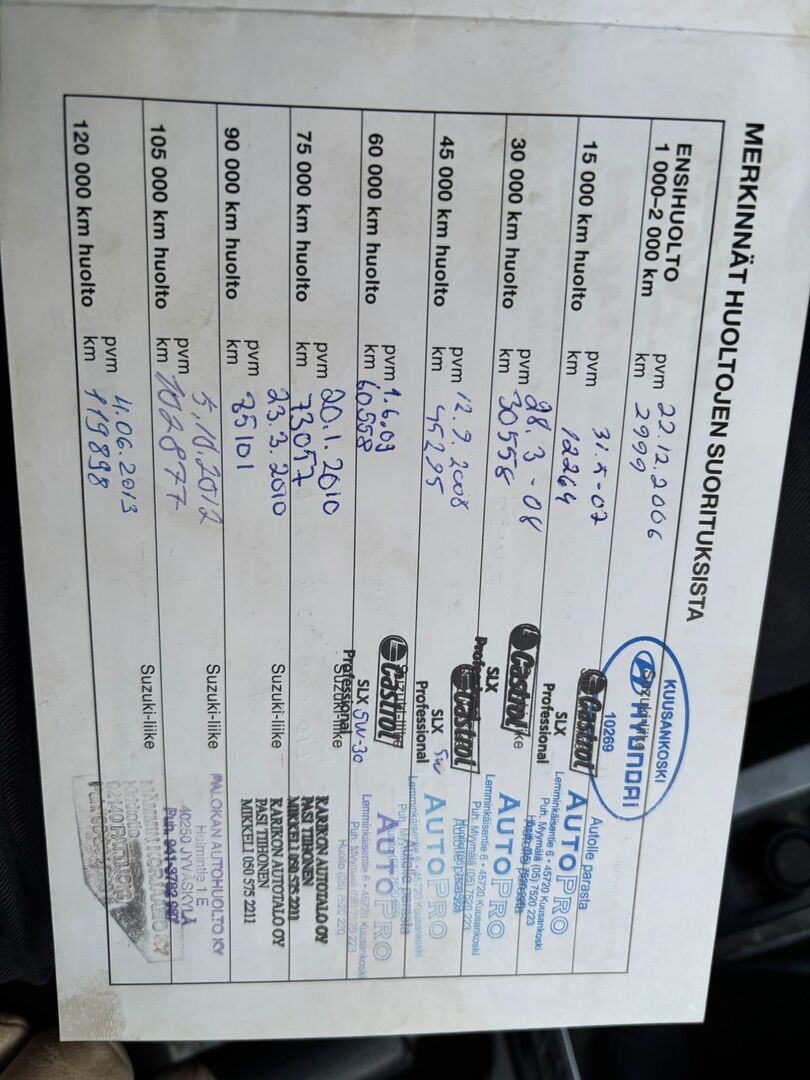 MERKINNÄT HUOLTOJEN SUORITUKSISTA
ENSIHUOLTO
1 000–2 000 km
pvm 22.12.2006
km 2999
KUUSANKOSKI
HYUNDAI
10269
15 000 km huolto
pvm 31.5-07
km 12264
Castrol
SLX
Professional
Autolle parasta
AUTOPRO
Lemminkäisentie 6 • 45720 Kuusankoski
Puh. Myymälä (05) 7520 223
30 000 km huolto
pvm 28.3-08
km 30558
Castrol
SLX
Professional
AUTOPRO
Lemminkäisentie 6 • 45720 Kuusankoski
Puh. Myymälä (05) 7520 223
45 000 km huolto
pvm 12.9.2008
km 45295
Castrol
SLX 5W
Professional
AUTOPRO
Lemminkäisentie 6 • 45720 Kuusankoski
Puh. Myymälä (05) 7520 223
60 000 km huolto
pvm 1.6.09
km 60558
Suzuki-liike
Castrol
SLX 5W-30
Professional
Autolle parasta
AUTOPRO
Lemminkäisentie 6 • 45720 Kuusankoski
Puh. Myymälä (05) 7520 223
Huolto (05) 7520 220
75 000 km huolto
pvm 20.1.2010
km 73057
Suzuki-liike
KARIKON AUTOTALO OY
PASI TIIHONEN
MIKKELI 050 575 2211
90 000 km huolto
pvm 23.3.2010
km 85101
Suzuki-liike
KARIKON AUTOTALO OY
PASI TIIHONEN
MIKKELI 050 575 2211
105 000 km huolto
pvm 5.10.2012
km 102877
Suzuki-liike
PALOKAN AUTOHUOLTO KY
Helmintie 1 E
40250 JYVÄSKYLÄ
120 000 km huolto
pvm 4.06.2013
km 119898
Suzuki-liike